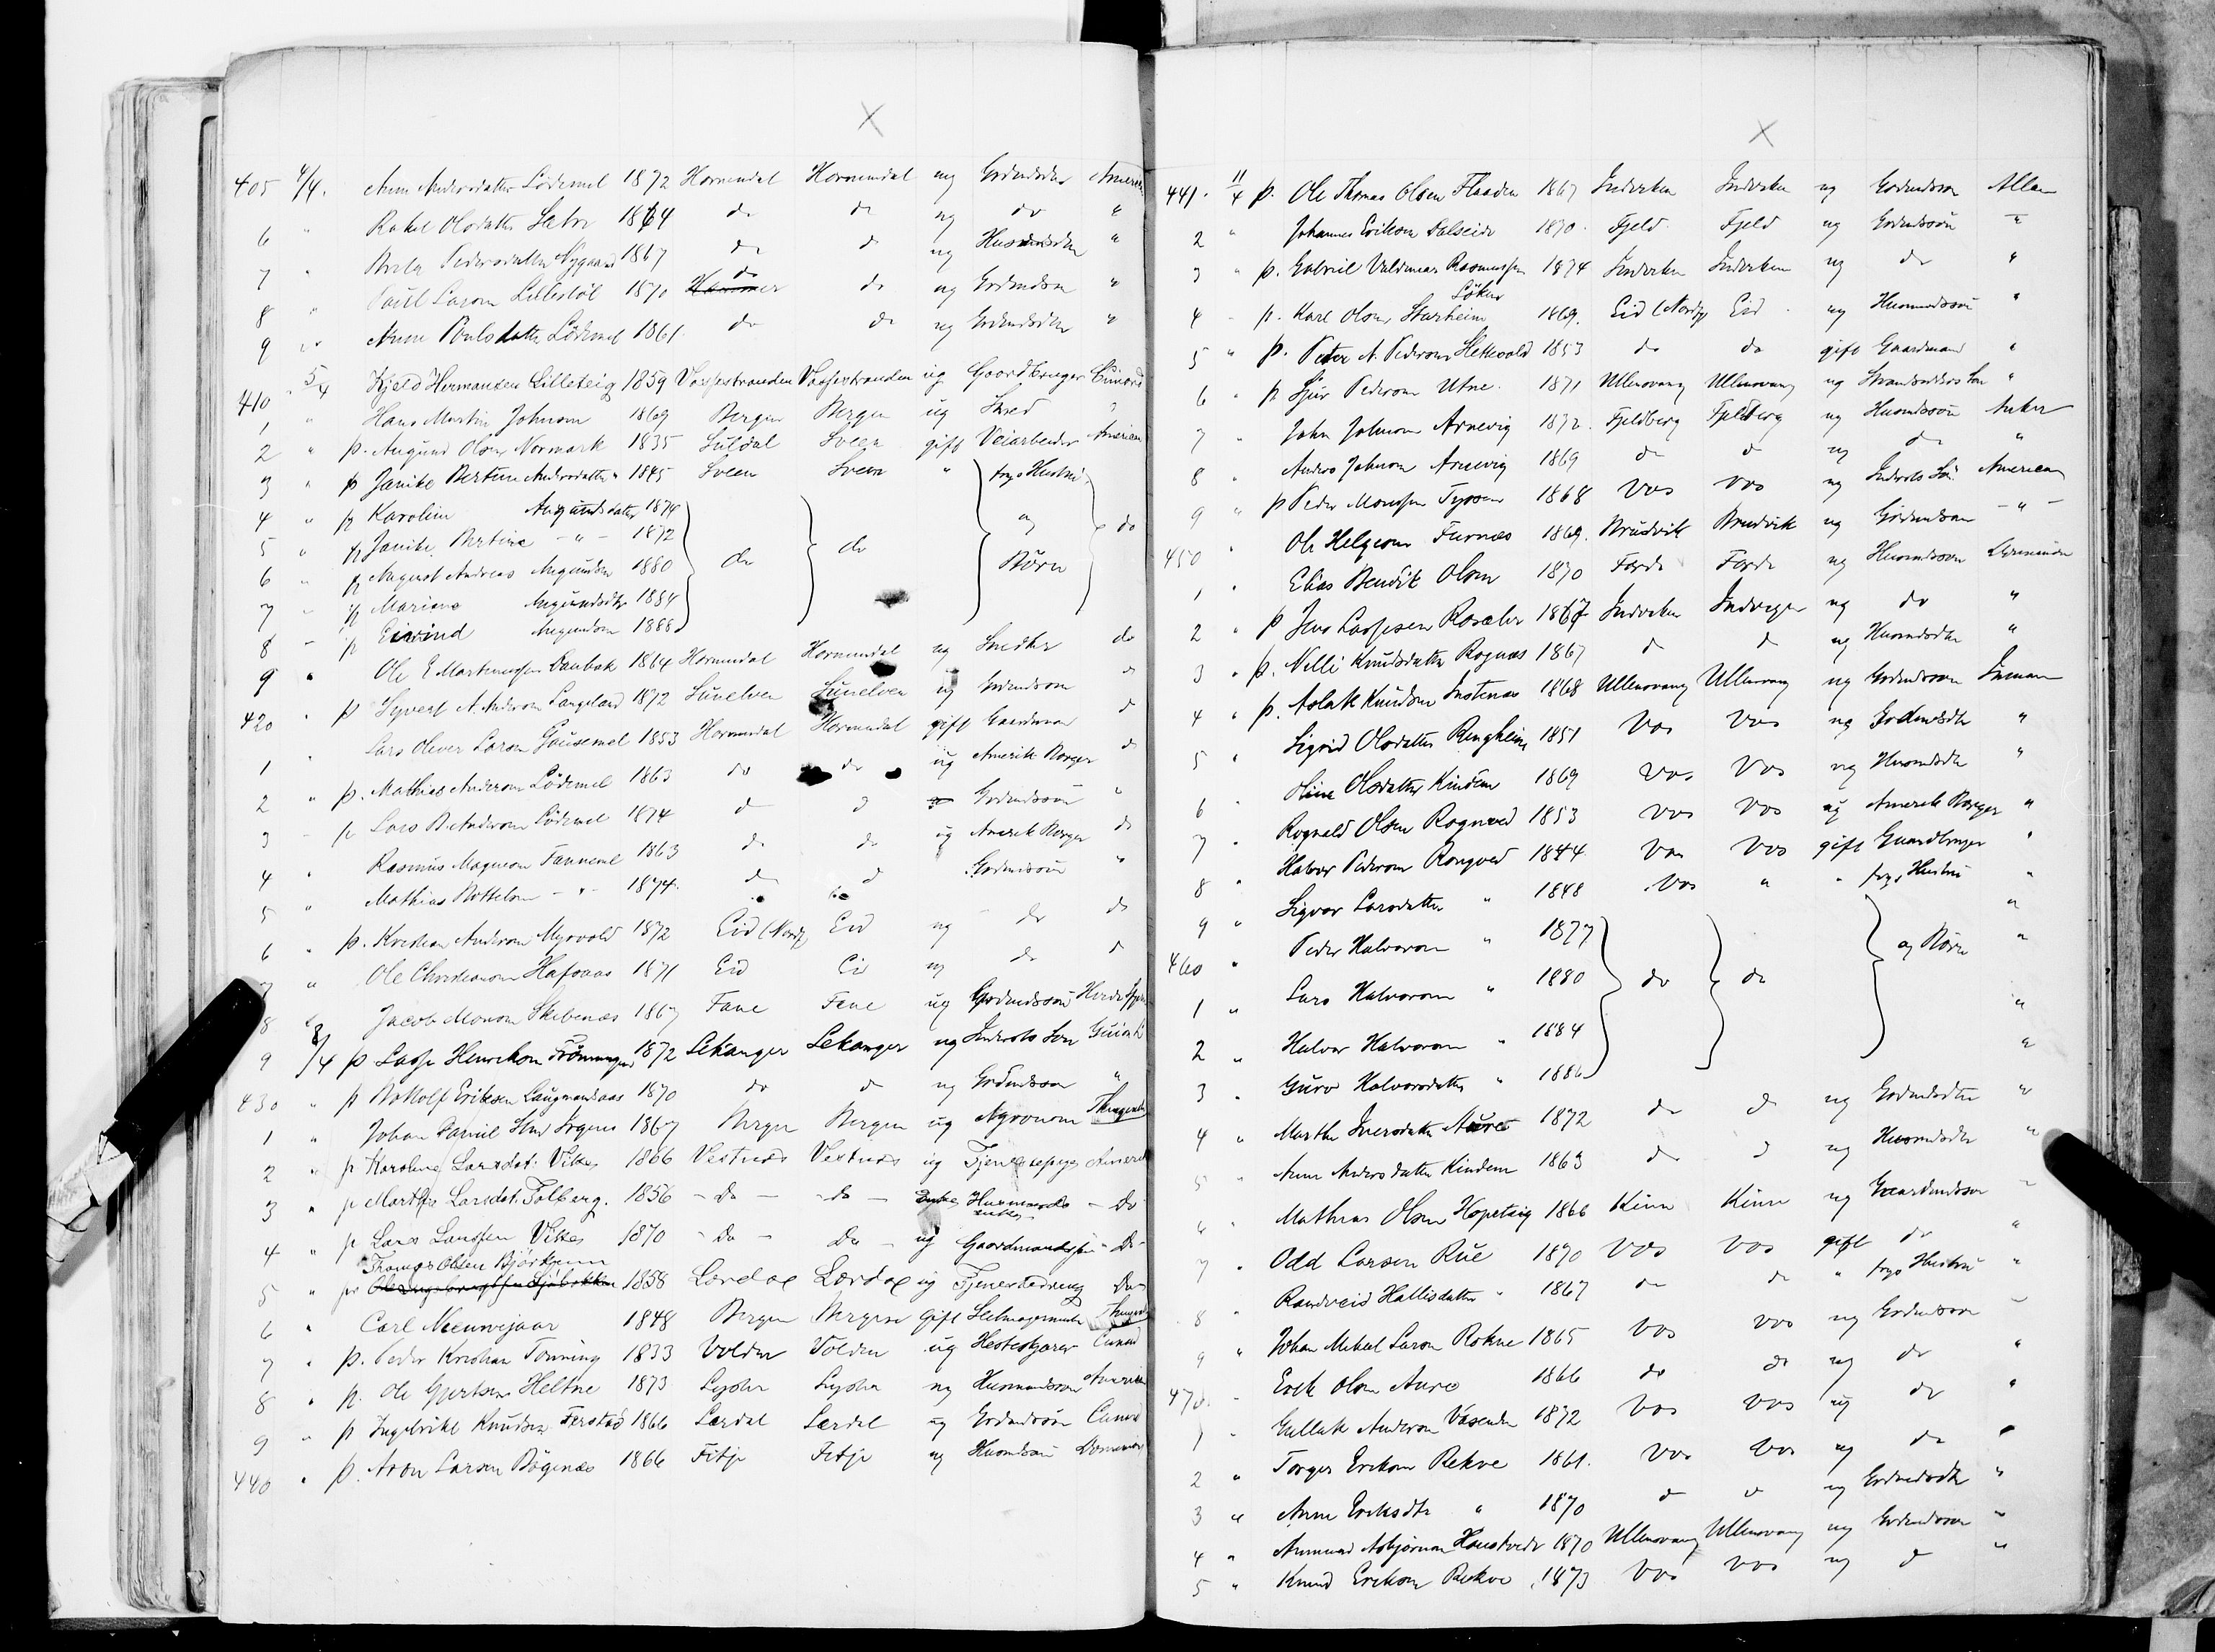 X
405 4/4. Anne Andersdatter Lödemel 1872 Hornendal Hornendal ug Grdmdsdtr American
6 " Rakel Olsdatter Sætre 1864 do do ug do "
7 " Brita Pedersdatter Nygaard 1867 do do ug Husmdsdtr "
8 " Paul Larsen Lillestöl 1870 do do ug Grdmdsøn "
9 " Anne Poulsdatter Lödemel 1861 do do ug Grdmdsdtr "
410 5/4 Kjeld Hermansen Lilleteig 1859 Vossestranden Vossestranden ug Gaardbruger Cunard
1 " Hans Martin Johnsen 1869 Bergen Bergen ug Smed "
2 " p. Augund Olsen Normark 1835 Suldal Sveen gift Veiarbeider American
3 " p Janike Bertine Andersdatter " 1845 Sveen Sveen " frgs Hustru
4 " p Karoline Augundsdatter 1874
5 " p Janike Bertine - " - 1872 og do
6 " p August Andreas Augundsen 1880 do do Børn
7 " p Mariane Augundsdtr 1884
8 " p Eivind Augundsen 1888
9 " Ole E Martinussen Danbak 1864 Hornendal Hornendal ug Snedker do
420 " p Syvert A. Andersen Langeland 1872 Sunelven Sunelven ug Grdmdsøn do
1 " Lars Oliver Larsen Gausemel 1853 Hornendal Hornendal gift Gaardman do
2 " p. Mathias Andersen Lödemel 1863 do do ug Amerik Borger do
3 " p Lars B. Andersen Lödemel 1874 do do Grdmdsøn "
4 " Rasmus Magnesen Tanneme 1863 do do ug Amerik Borger do
5 " Mathias - " - 1874. do do Grdmdsøn "
6 " p. Kristian Andersen Myrvold 1872 Eid (Nordf) Eid ug do do
7 " Ole Christiansen Hafsaas 1871 Eid Eid ug do do
8 " Jacob Monsen Skibenæs 1867 Fane Fane ug Grdmdssøn
9 8/4 p Lasse Henriksen Frönningen 1872 Lekanger Lekanger ug Inderstes Søn
430 " p Rollolf Eriksen Laugmandsaas 1870 do do ug Grdmdsøn "
1 " Johan Daniel 1867 Bergen Bergen ug Agronom Thingvalla
2 " p Karoline Larsdat. Vike 1866 Vestnæs Vestnæs ug Tjenestepige American
3 " p Marthe Larsdat. Tolberg. 1856 - Do - - do - Enke Husmands enke - Do
4 " p Lars Larssen Vike 1870 - Do - Do - ug Gaardmandssøn - Do -
Thomas Olsen Björkum
5 " p 1858 Lærdal Lærdal ug Tjenestedreng Do
6 " Carl Neeuwejaar 1848 Bergen Bergen Gift Thingvalla
7 " p. Peder Kristian Tonning 1833 Volden Volden ug Cunard
8 " p. Ole Gjertsen Heltne 1873 Lyster Lyster ug Husmandssøn American
9 " p Ingebrikt Knudsen Ferstad 1866 Lærdal Lærdal ug Grdmdsøn Cunard
440 " p. Aron Larsen Bögenæs 1866 Fitje Fitje ug Husmdsøn Dominion
X
441. 11/4 p. Ole Thomas Olsen Flaaden 1867 Indviken Indviken ug Grdmdssøn Allan
2 " Johannes Eriksen Dalseide 1870. Fjeld Fjeld ug Grdmdssøn "
3 " p. Gabriel Valdemar Rasmussen 1874 Indviken Indviken ug do "
Löken
4 " p. Karl Olsen Starheim 1869. Eid (Nordf) Eid ug Husmandssøn "
5 " p. Peter A. Pedersen Hekkevold 1853 do do gift Gaardmand "
6 " p Sjur Pedersen Utne 1871 Ullensvang Ullensvang ug Strandsidders Søn "
7 " John Johnsen Arnevig 1872. Fjeldberg Fjeldberg ug Husmdssøn Anker
8 " Anders Johnsen Arnevig 1869 do do ug do "
9 " p Peder Monssen Tyssen 1868 Vos Vos ug Inderstes Søn American
450 " Ole Helgesen Furnæs 1869. Brudvik Brudvik ug Grdmdsøn - " -
1 " Elias Bendik Olsen 1870 Førde Førde ug Husmdssøn Dominion
2 " p Jens Lassesen Rosæter 1867 Indviken Indvigen ug do "
3 " p. Nilli Knudsdatter Rognæs 1867 do do ug Husmdsdtr "
4 " p. Aslak Knudsen Instenæs 1868 Ullensvang Ullensvang ug Grdmdssøn Inman
5 " Sigrid Olsdatter Ringheim 1851 Vos Vos ug Grdmdsdtr "
6 " Stine Olsdatter Kindem 1869 Vos Vos ug Husmdsdtr "
7 " Rognald Olsen Rogneved 1853 Vos Vos ug Amerik Borger "
8 " Halvor Pedersen Rongved 1844 Vos Vos gift Gaardbruger "
9 " Sigvor Larsdatter " 1848 Vos " " frgs Hustru "
460 " Peder Halvorsen " 1877 og Børn "
1 " Lars Halvorsen " 1880 do do "
2 " Halvor Halvorsen " 1884 "
3 " Guro Halvorsdatter " 1886 "
4 " Marthe Iversdatter Aure 1872 do do ug Grdmdsdtr "
5 " Anne Andersdatter Kindem 1863 do do ug Husmdsdtr "
6 " Mathias Olsen Hopeteig 1866 Kinn Kinn ug Gaardmdssøn "
7 " Odd Larsen Rue 1870 Vos Vos gift do "
8 " Randveid Hallisdatter " 1867 do do " frgs Hustru "
9 " Johan Mikael Larsen Rokne 1865 Vos Vos ug Grdmdssøn "
470. " Erik Olsen Aure 1866 do do ug do "
1 " Gullak Andersen Væsende 1872 Vos Vos ug do "
2 " Torger Eriksen Rekve 1861. Vos Vos ug do "
3 " Anne Eriksdtr " 1870 do do ug Grdmdsdtr "
4 " Aamund Asbjørnsen Haustveit 1870 Ullensvang Ullensvang ug Grdmdssøn "
5 " Knud Eriksen Rekve 1873 Vos Vos ug do "